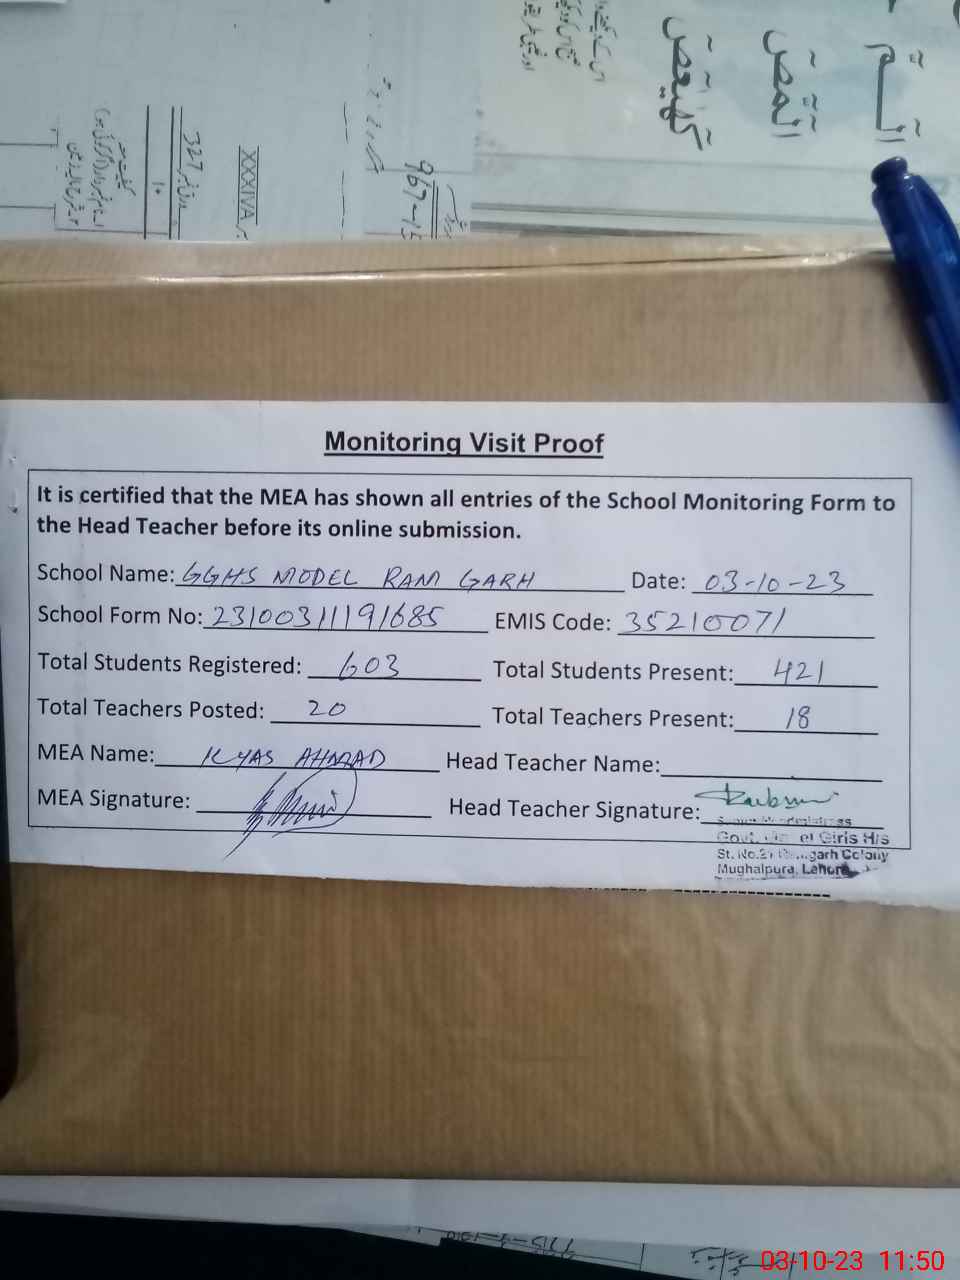 الٓــمّٓ
الٓمّٓصٓ
كٓهٰيٰعٓصٓ
967-15
XXXIVA
327
۱۰
Monitoring Visit Proof
It is certified that the MEA has shown all entries of the School Monitoring Form to
the Head Teacher before its online submission.
School Name: GGHS MODEL RAM GARH Date: 03-10-23
School Form No: 23100311191685 EMIS Code: 35210071
Total Students Registered: 603 Total Students Present: 421
Total Teachers Posted: 20 Total Teachers Present: 18
MEA Name: ILYAS AHMAD Head Teacher Name:
MEA Signature: Head Teacher Signature:
Govt. Girls H/s
Colony
Mughalpura, Lahore
03-10-23 11:50